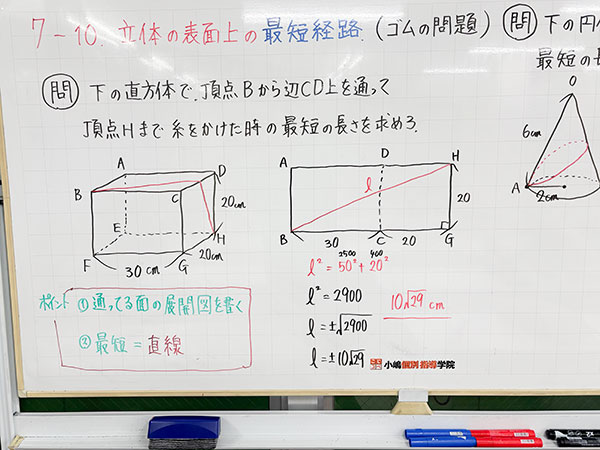 7-10. 立体の表面上の最短経路. (ゴムの問題)
問 下の直方体で、頂点Bから辺CD上を通って
頂点Hまで糸をかけた時の最短の長さを求めろ.
A
D
B
C
20cm
E
H
F
G
20cm
30cm
A
D
H
ℓ
20
B
30
C
20
G
2500 400
ℓ² = 50² + 20²
ℓ² = 2900
ℓ = ±√2900
ℓ = ±10√29
10√29 cm
ポイント ①通ってる面の展開図を書く
②最短 = 直線
小嶋個別指導学院
問 下の円
最短の長
O
6cm
A
2cm